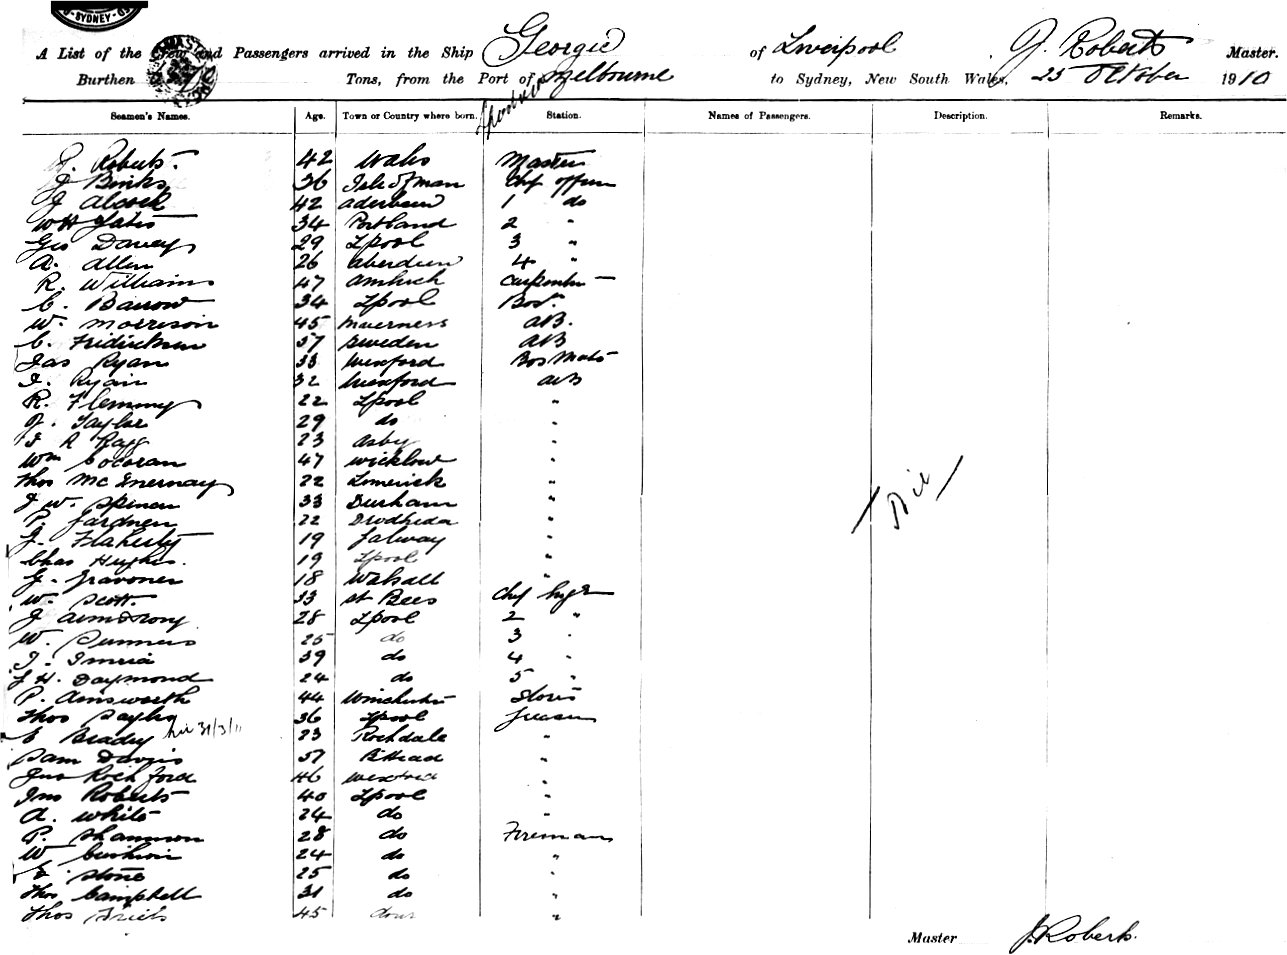 SYDNEY
A List of the Crew and Passengers arrived in the Ship Georgic of Liverpool J. Roberts Master.
Burthen Tons, from the Port of Melbourne to Sydney, New South Wales, 25 October 1910
Seamen's Names. Age. Town or Country where born. Station. Names of Passengers. Description. Remarks.
J. Roberts. 42 Wales Master
J Binks 36 Isle of man Chf offr
J Alcock 42 aderdeen 1 do
WH Yates 34 Portland 2 "
Geo Davey 29 Lpool 3 "
A. Allen 26 aberdeen 4 "
R. Williams 47 amlwch Carpenter
C. Barrow 34 Lpool Bos.
W. Morrison 45 Inverness AB.
C. 37 Sweden AB
Jas Ryan 33 Wexford Bos Mate
J. Ryan 32 Wexford AB
R. Flemmy 22 Lpool "
J. Taylor 29 do "
J R Ragg 23 "
Wm Cocoran 47 Wicklow "
Thos McInernay 22 Limerick "
J W. Spence 33 Durham "
P. Gardner 22 "
J. Flaherty 19 Galway "
Chas Hughes. 19 Lpool "
G. 18 Walsall "
W. Scott. 33 St Bees Chf
J Armstrong 28 Lpool 2 "
W. 25 do 3 "
J. 39 do 4 "
J H. Daymond 24 do 5 "
P. Ainsworth 44 Winchester Stores
Thos 36 Lpool Greaser
E Bradey 31/3/11 23 Rochdale "
Sam Davies 37 BHead "
Jno Rochford 46 Wexford "
Jno Roberts 40 Lpool "
A. White 24 do "
P. Shannon 28 do Fireman
W 24 do "
E Stone 25 do "
Thos Campbell 31 do "
Thos 45 "
Nil
Master J. Roberts.